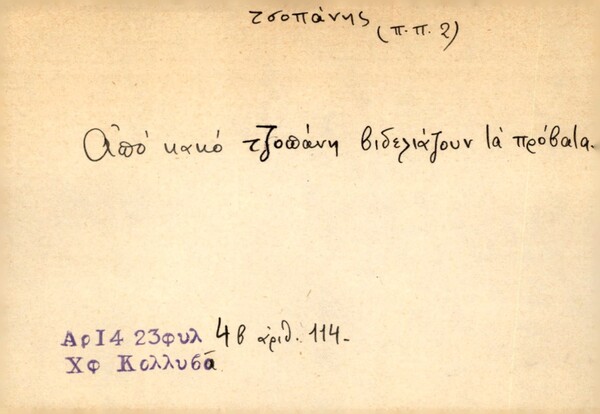 τσοπάνης (π.π. 2)
Ἀπό κακό τζοπάνη βιδελιάζουν τά πρόβατα.
ΑρΙ4 23φυλ 4β ἀριθ. 114.
Χφ Κολλυβᾶ